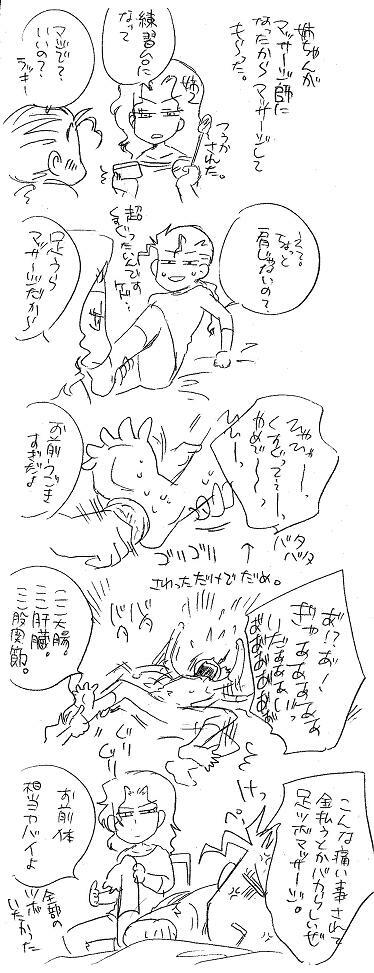 姉ちゃんが
マッサージ師に
なったからマッサージして
もらった。
練習台に
なって
姉→
マジで?
いいの?
ラッキー
つうか
された。
えっ。
ちょっと
肩じゃないの?
超
くすぐったいんです
けど…
足ウラ
マッサージだから
ひゃひゃーっ、
くすぐってぇーっ、
やめでーっ、
ひーっ、
バタ
バタ
お前うごき
すぎだよ
ゴリゴリ
↑
さわっただけでだめ。
あ!?あ!
ぎゃあああああ
いだぁぁぁいっ
ああああああ
バ
タ
バ
タ
ここ大腸。
ここ肝臓。
ここ股関節。
ぐり
ぐり
こんな痛い事されて
金払うとかバカらしいぜ
足ツボマッサージ。
けっ
お前体
相当ヤバイよ
全部の
ツボ
いたかった